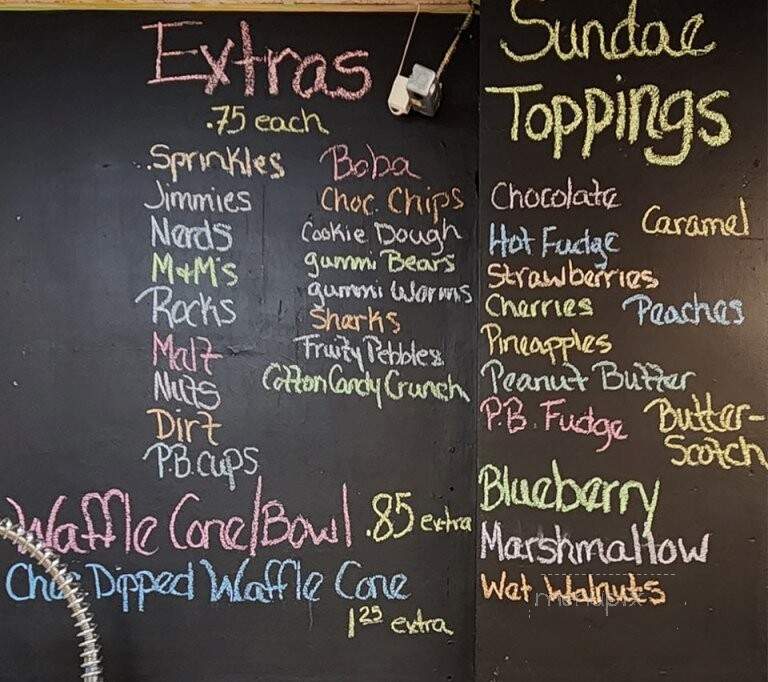 Extras
.75 each
Sprinkles
Jimmies
Nerds
M+M's
Rocks
Malt
Nuts
Dirt
P.B. cups
Boba
Choc Chips
Cookie Dough
gummi Bears
gummi Worms
Sharks
Fruity Pebbles
Cotton Candy Crunch
Waffle Cone/Bowl .85 extra
Choc Dipped Waffle Cone
1 25 extra
Sundae
Toppings
Chocolate
Caramel
Hot Fudge
Strawberries
Cherries Peaches
Pineapples
Peanut Butter
P.B. Fudge
Butter-
Scotch
Blueberry
Marshmallow
Wet Walnuts
menupix